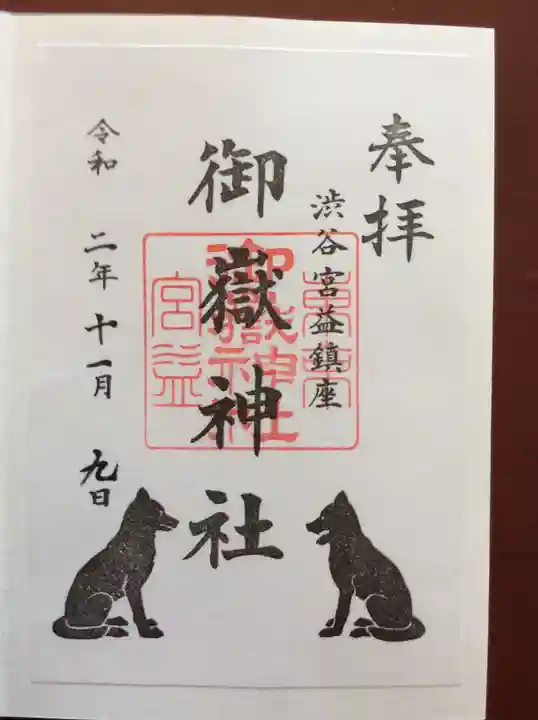 奉拝
渋谷宮益鎮座
御嶽神社
令和 二年十一月 九日
東京
御嶽神社
宮益